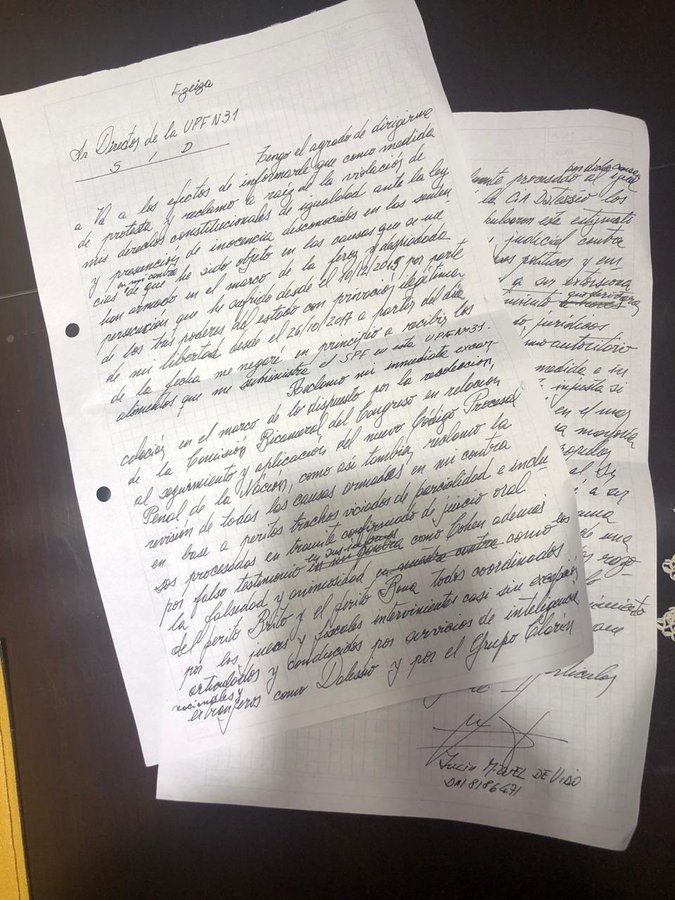 Ezeiza
Sr Director de la UPF N31
S / D
Tengo el agrado de dirigirme
a Ud a los efectos de informarle que como medida
de protesta y reclamo a raiz de la violación de
mis derechos constitucionales de igualdad ante la ley
y presunción de inocencia desconocidos en las senten
cias de que he sido objeto en las causas que se me
en mi contra
han armado en el marco de la feroz y despiadada
persecución que he sufrido desde el 10/12/2015 por parte
de los tres poderes del estado con privación ilegítima
de mi libertad desde el 26/10/2017 a partir del día
de la fecha me negaré en principio a recibir los
alimentos que me suministra el SPF en esta UPFN31.
Reclamo mi inmediata excar
celación en el marco de lo dispuesto por la resolución,
de la Comisión Bicameral del Congreso en relación
al seguimiento y aplicación del nuevo Código Procesal
Penal de la Nación, como así también reclamo la
revisión de todas las causas armadas en mi contra
en base a peritos truchos viciados de parcialidad e inclu
sos procesados en tramite confirmado de juicio oral
por falso testimonio en mi contra como Cohen además
en sus informes
la falsedad y animosidad en nuestra contra como los
del perito Brito y el perito Bona todos coordinados
por los jueces y fiscales intervinientes casi sin excepción,
articulados y conducidos por servicios de inteligencia
nacionales y
extranjeros como Dalessio y por el Grupo Clarín
por dicha causa
procesado al igual
la CIA Datessio los
este estigmati
judicial contra
politicos y em
a ser extorsiona
que derivara
jurídicos
autoritario
medida a su
impuesta si
en el mas
mayoría
al Sr
a su
una
de una
Articulos
Julio Miguel DE VIDO
DNI 8186471